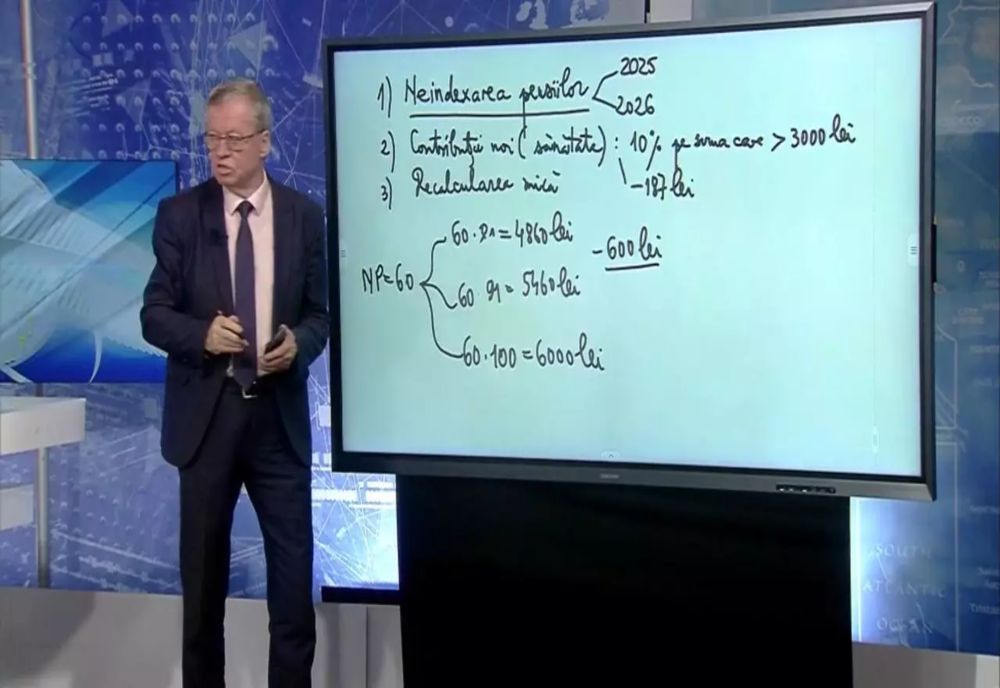 1) Neindexarea pensiilor 2025
2026
2) Contribuții noi (sănătate) : 10% pe suma care > 3000 lei
-187 lei
3) Recalcularea mică
NP=60
60·81=4860 lei
-600 lei
60·91=5460 lei
60·100=6000 lei
SOUTH
ATLANTIC
OCEAN